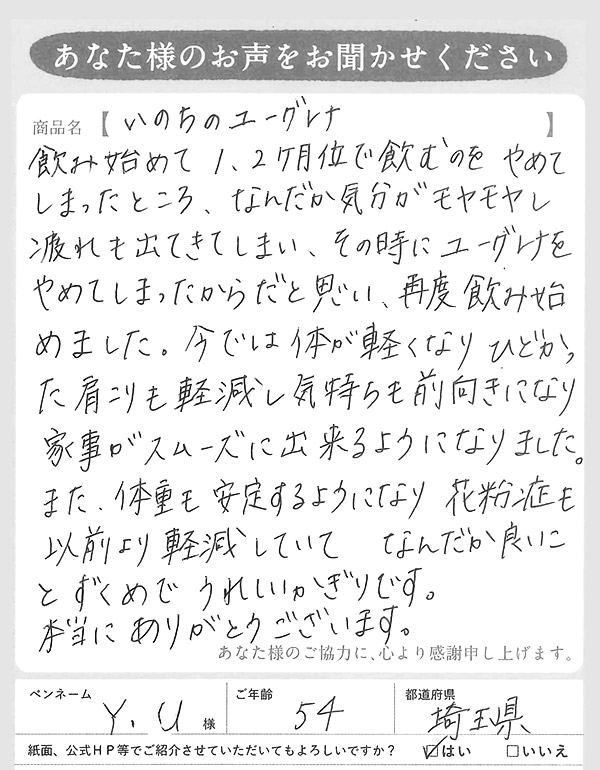 あなた様のお声をお聞かせください
商品名【 いのちのユーグレナ 】
飲み始めて1、2ヶ月位で飲むのをやめて
しまったところ、なんだか気分がモヤモヤし
疲れも出てきてしまい、その時にユーグレナを
やめてしまったからだと思い、再度飲み始
めました。今では体が軽くなりひどかっ
た肩こりも軽減し気持ちも前向きになり
家事がスムーズに出来るようになりました。
また、体重も安定するようになり 花粉症も
以前より軽減していて なんだか良いこ
とずくめで うれしいかぎりです。
本当にありがとうございます。
あなた様のご協力に、心より感謝申し上げます。
ペンネーム Y.U 様 ご年齢 54 都道府県 埼玉県
紙面、公式HP等でご紹介させていただいてもよろしいですか? ☑はい □いいえ